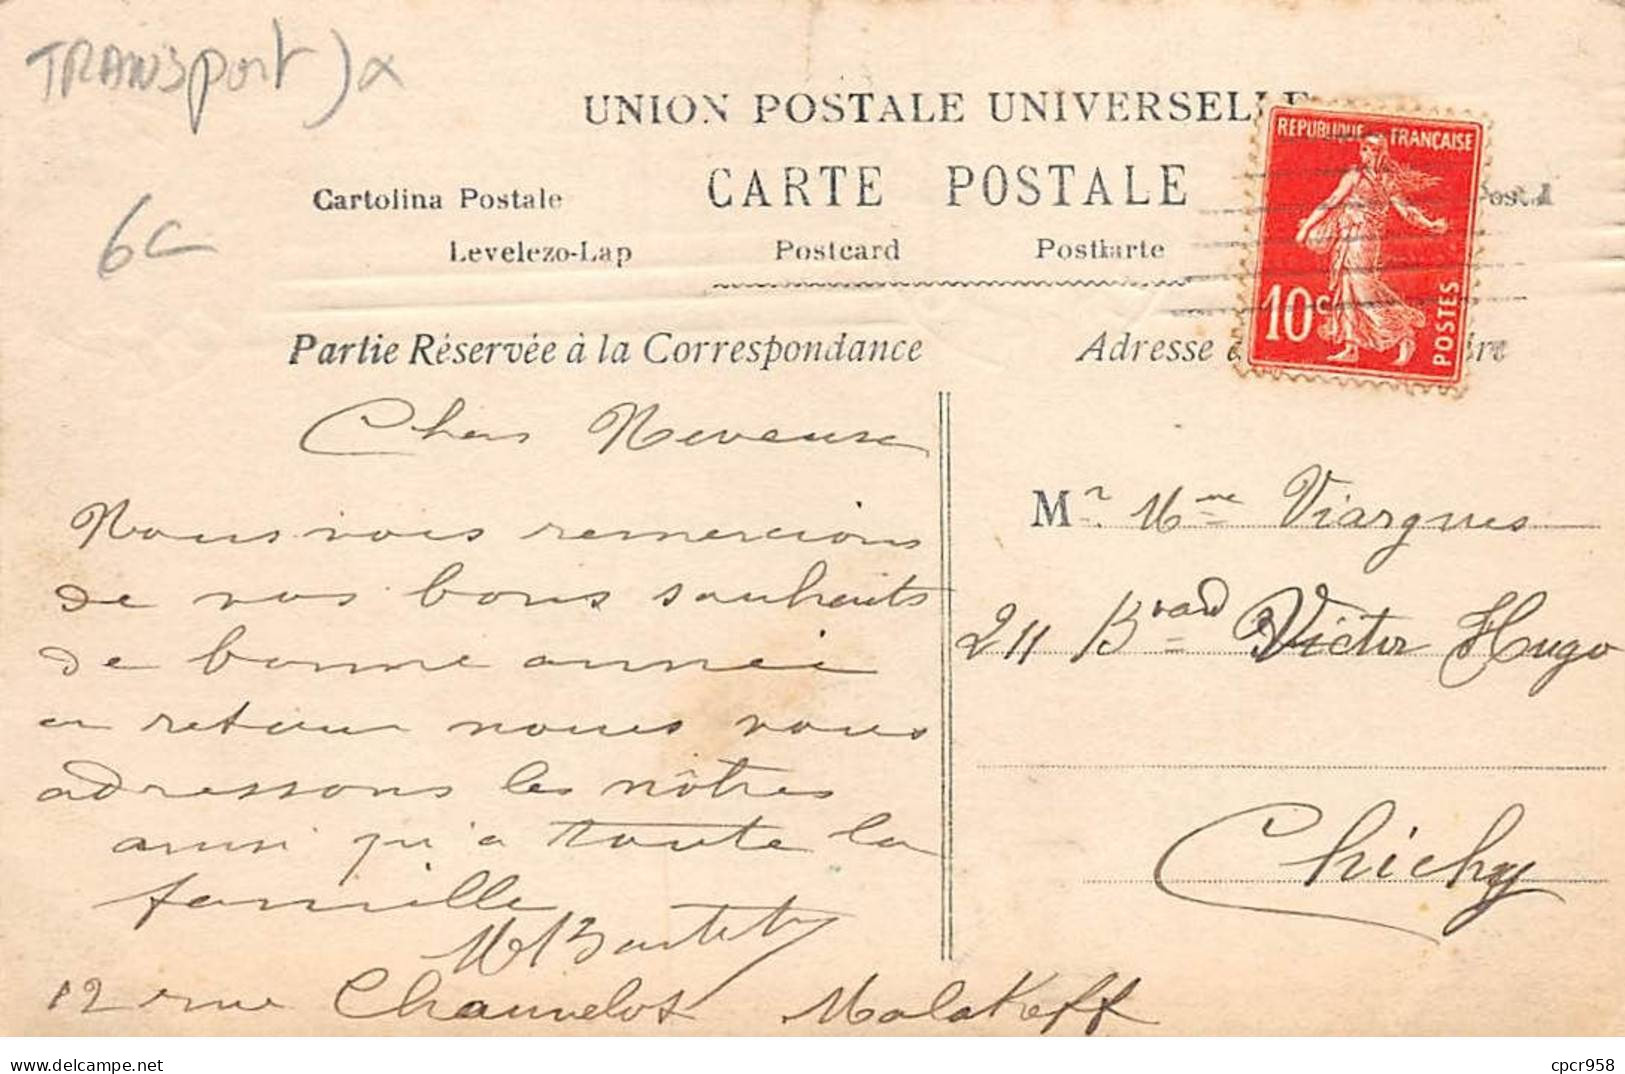 TRANSport) α
UNION POSTALE UNIVERSELLE
REPUBLIQUE FRANCAISE
CARTE POSTALE
Cartolina Postale
Levelezo-Lap
Postcard
Postkarte
6c
10c
POSTES
Partie Réservée à la Correspondance
Adresse
Chers Neveux
Nous vous remercions
de vos bons souhaits
de bonne année
en retour nous vous
adressons les nôtres
ainsi qu'a toute la
famille
12 rue Malakoff
Mr Mme Viargues
211 Bvard Victor Hugo
Chichy
Delcampe.net
cpcr958